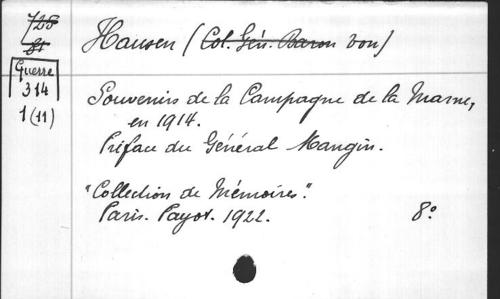 728
81
Guerre
314
1(11)
Hausen (Col. Gén. Baron von)
Souvenirs de la Campagne de la Marne,
en 1914.
Préface du Général Mangin.
"Collection de Mémoires".
Paris. Payot. 1922. 8°